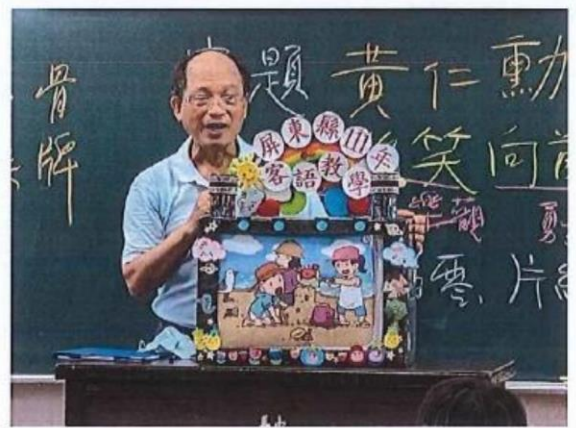 骨牌
題 黃仁勳
笑向
樂觀
屏東縣111年
客語教學